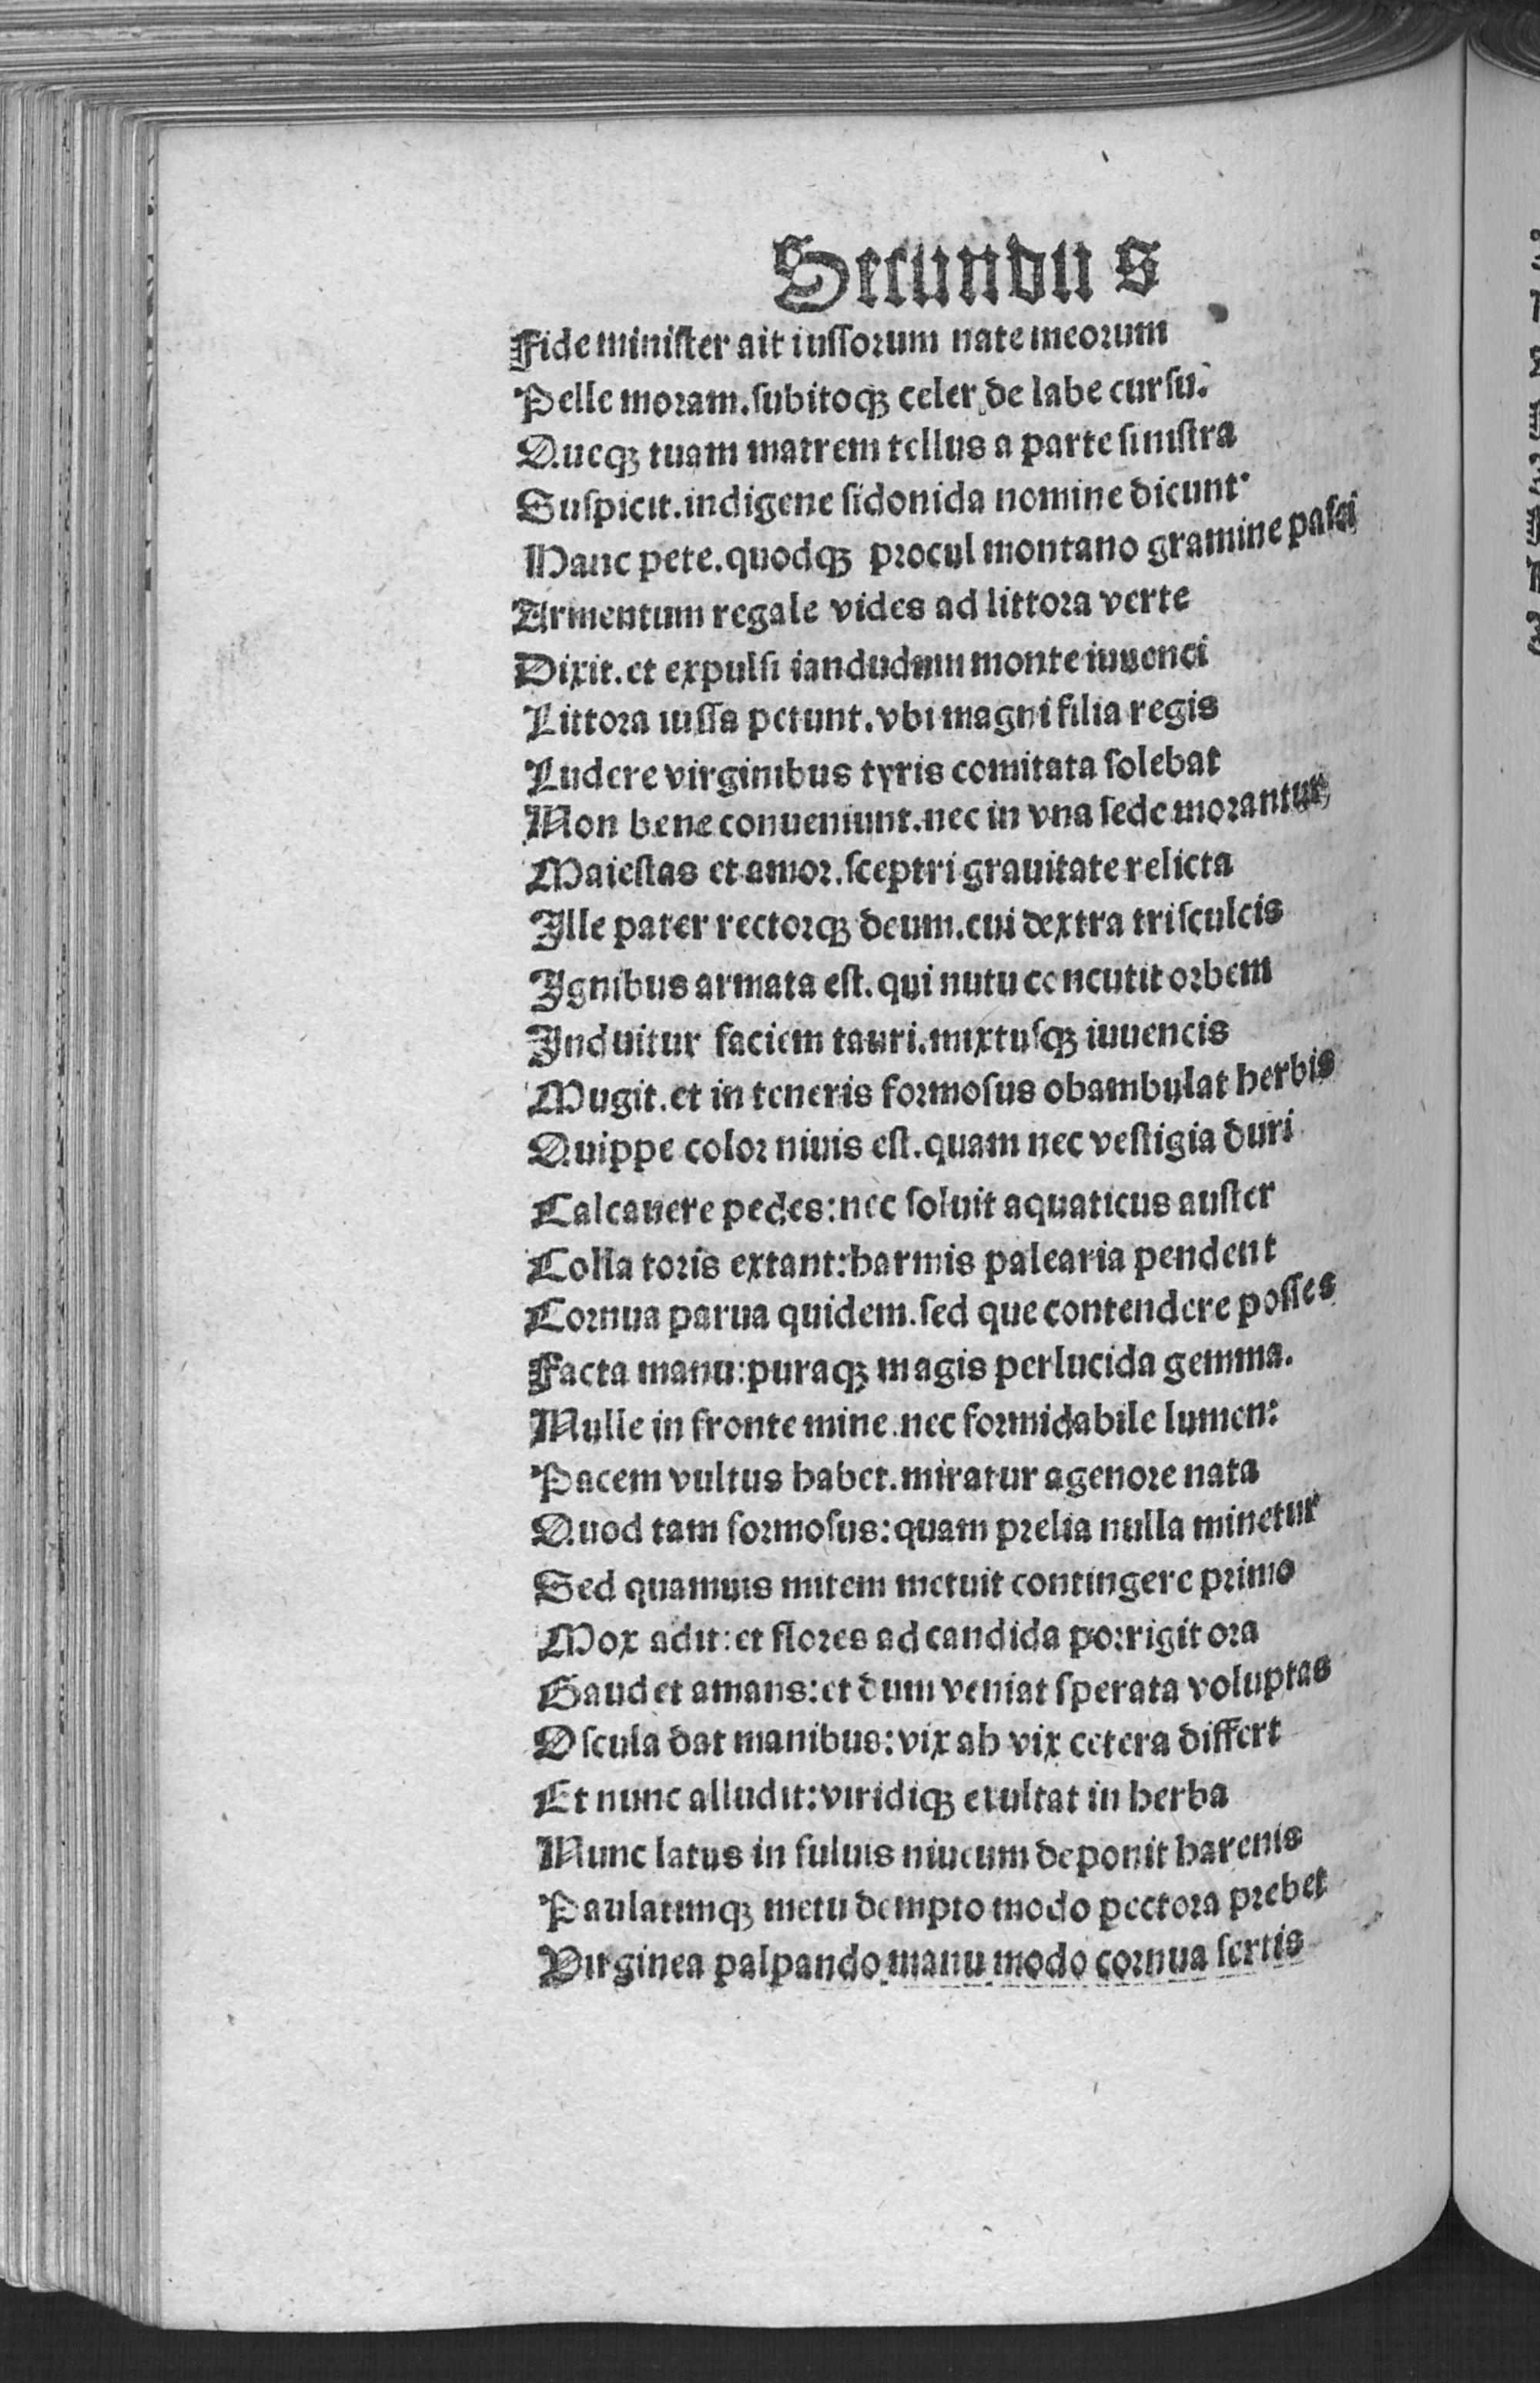 Secundus
Fide minister ait iussorum nate meorum
Pelle moram.subitoqꝫ celer de labe cursu.
Queqꝫ tuam matrem tellus a parte sinistra
Suspicit.indigene sidonida nomine dicunt.
Hanc pete.quodqꝫ procul montano gramine pasci
Armentum regale vides ad littora verte
Dixit.et expulsi iandudum monte iuuenci
Littora iussa petunt.vbi magni filia regis
Ludere virginibus tyris comitata solebat
Non bene conueniunt.nec in vna sede morantur
Maiestas et amor.sceptri grauitate relicta
Ille pater rectorqꝫ deum.cui dextra trisculcis
Ignibus armata est.qui nutu concutit orbem
Induitur faciem tauri.mixtusqꝫ iuuencis
Mugit.et in teneris formosus obambulat herbis
Quippe color niuis est.quam nec vestigia duri
Calcauere pedes:nec soluit aquaticus auster
Colla toris extant:harmis palearia pendent
Cornua parua quidem.sed que contendere posses
Facta manu:puraqꝫ magis perlucida gemma.
Nulle in fronte mine.nec formidabile lumen:
Pacem vultus habet.miratur agenore nata
Quod tam formosus:quam prelia nulla minetur
Sed quamuis mitem metuit contingere primo
Mox adit:et flores ad candida porrigit ora
Gaudet amans:et dum veniat sperata voluptas
Oscula dat manibus:vix ah vix cetera differt
Et nunc alludit:viridiqꝫ exultat in herba
Nunc latus in fuluis niueum deponit harenis
Paulatimqꝫ metu dempto modo pectora prebet
Virginea palpando manu modo cornua sertis